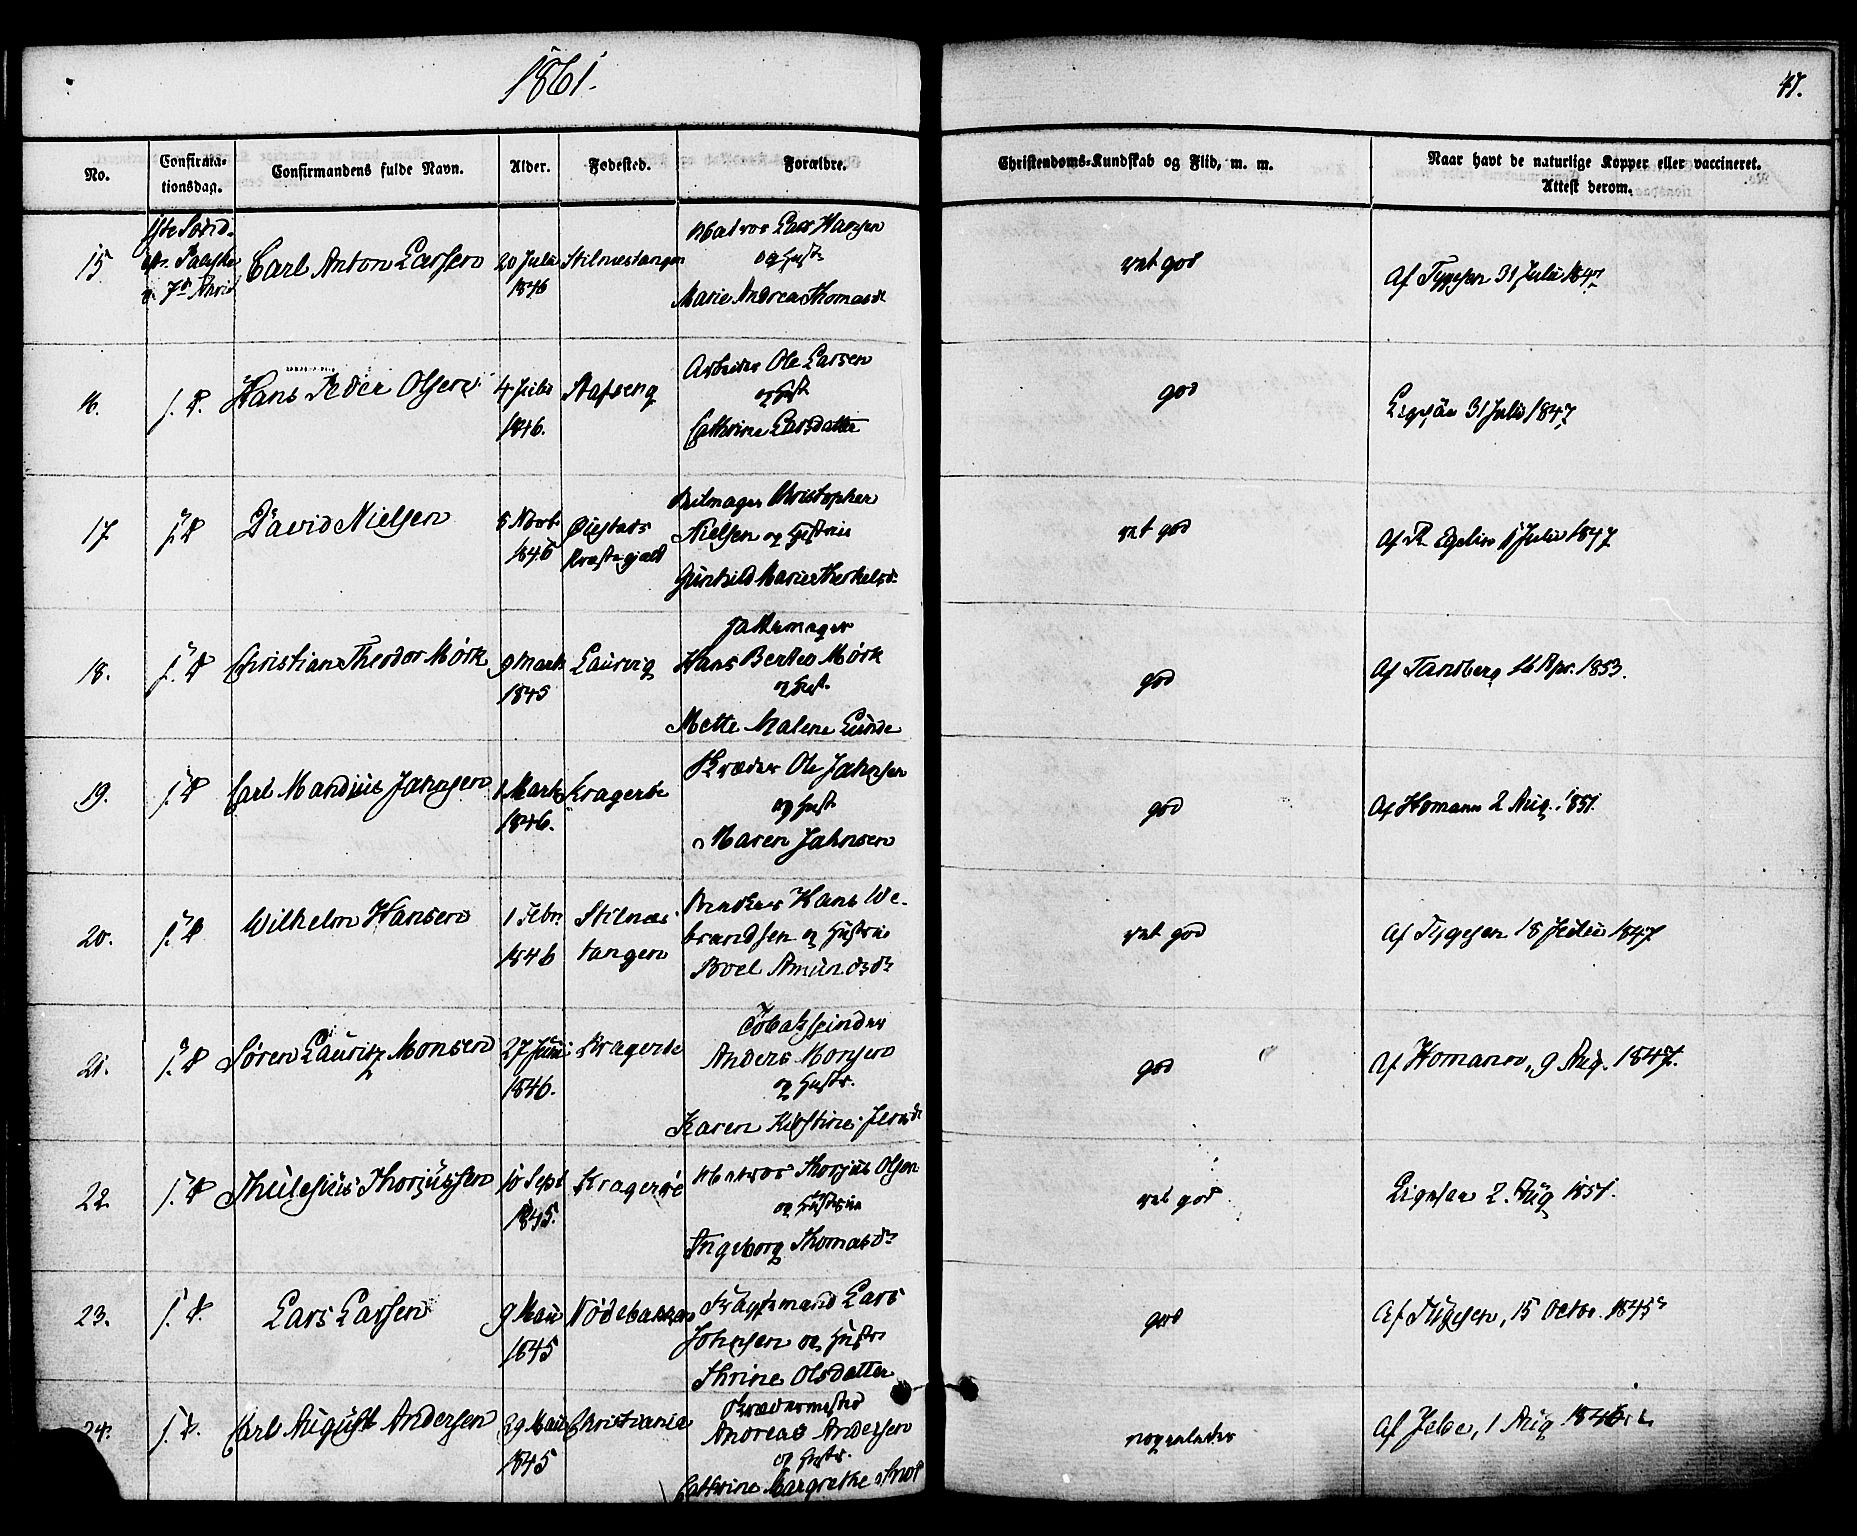 1861.
47.
No.
Confirma-
tionsdag.
Confirmandens fulde Navn.
Alder.
Fødested.
Forældre.
Christendoms-Kundskab og Flid, m. m.
Naar havt de naturlige Kopper eller vaccineret.
Attest derom.
15
Carl Anton Larsen
20 Juli
1846
Stilnestangen
Matros Lars Hansen
og Hustr
Marie Andrea Thomasd
mt god
Af Tygesen 31 Julii 1847
16.
Hans Peder Olsen
4 Julii
1846.
Arbeider Ole Larsen
og Hust
Cathrine Larsdatter
god
Ligesaa 31 Julii 1847
17
David Nielsen
5 Novb
Øiestads
Præstegjæld
Christopher
Nielsen og Hustrue
Gunhild Marie Therkelsd.
mt god
Julii 1847
18.
Christian Theodor Mørk
9 Marts
1845
Laurvig
Hans Berteo Mørk
og Hust.
Mette Malene Lunde
god
Af Tansberg 16 Apr. 1853.
19.
Carl Mandius Jahnsen
1 Marts
1846.
Kragerøe
Skræder Ole Jahnsen
og Hustr
Maren Jahnsen
god
Af Homann 2 Aug. 1851.
20.
Wilhelm Hansen
1 Febr.
1846
Stilnes
tangen
Hans We-
brandsen og Hustrue
Boel Amundsdr
mt god
Af Tygesen 18 Julii 1847
21.
Søren Lauritz Monsen
27 Juni
1846.
Kragerøe
Tobakspinder
Anders Monsen
og Hustr.
Karen Kirstine Jensd
god
Af Homann, 9 Aug. 1847.
22.
Thulesius Thorjussen
10 Sept
1845.
Kragerøe
Matros Thorjus Olsen
og Hustrue
Ingeborg Thomasdr
mt god
Ligesaa 2. Aug 1851.
23.
Lars Larsen
9 Mai
1845
Bøgsmand Lars
Johnsen og Hustr
Thrine Olsdatter
god
Af Tygesen, 15 Octbr. 1845
24.
Carl August Andersen
29 Mai
1845
Christiania
Skrædermester
Andreas Andersen
og Hustr.
Cathrine Margrethe
nogenledes
1 Aug 1846